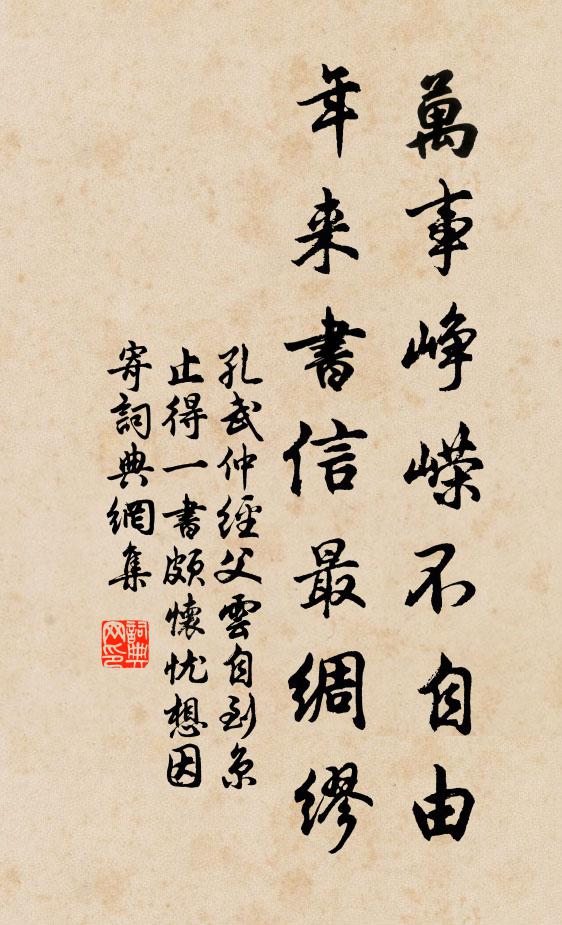 萬事崢嶸不自由
年来書信最綢繆
孔武仲經父雲自到京
止得一書頗懷忧想因
寄詞典網集
詞典
网印